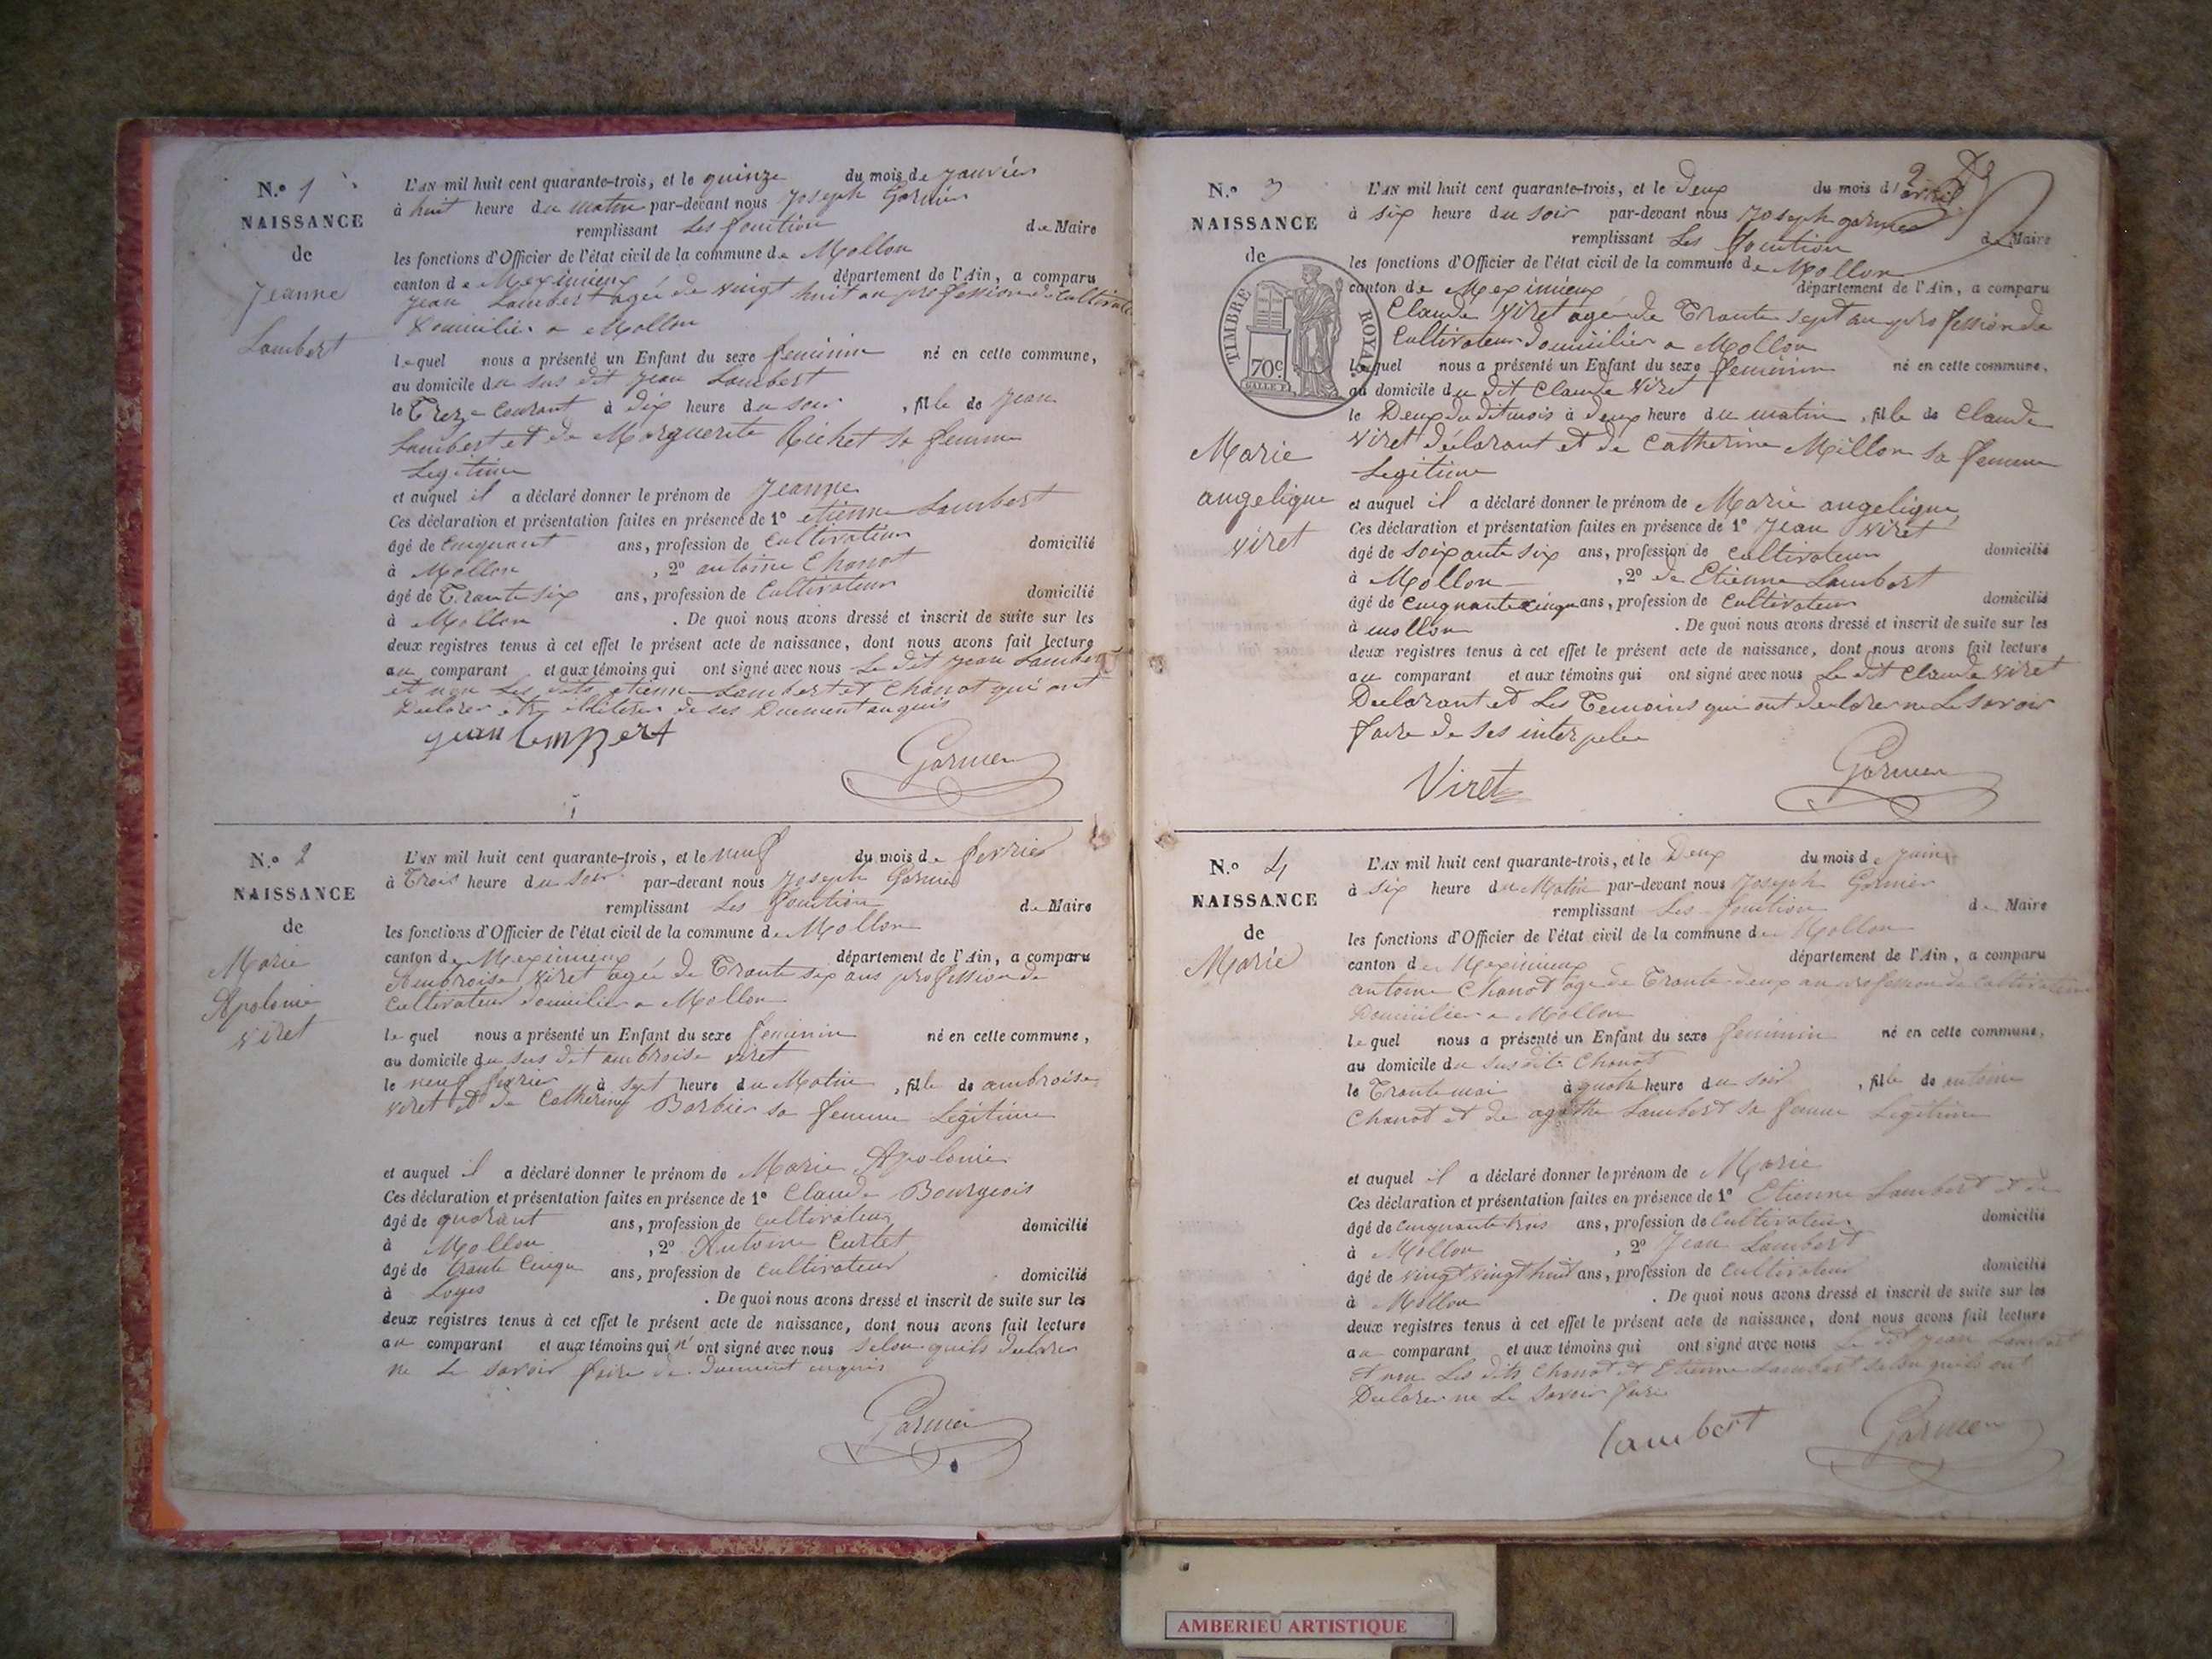 N.° 1
NAISSANCE
de
Jeanne
Lambert
L'AN mil huit cent quarante-trois, et le quinze du mois de janvier
à huit heure du matin par-devant nous Joseph Garnier
remplissant Les fonction de Maire
les fonctions d'Officier de l'état civil de la commune de Mollon
canton de Meximieux département de l'Ain, a comparu
Jean Lambert agée de vingt huit an profession de Cultivateur
Domicilier a Mollon
lequel nous a présenté un Enfant du sexe feminin né en cette commune,
au domicile du sus dit Jean Lambert
le Treze Courant à Dix heure du soir, fille de Jean
Lambert et de Marguerite Richet sa femme
Legitime
et auquel il a déclaré donner le prénom de Jeanne
Ces déclaration et présentation faites en présence de 1° etienne Lambert
âgé de Cinquant ans, profession de Cultivateur domicilié
à Mollon, 2° antoine Chanot
âgé de Trante six ans, profession de Cultivateur domicilié
à Mollon. De quoi nous avons dressé et inscrit de suite sur les
deux registres tenus à cet effet le présent acte de naissance, dont nous avons fait lecture
au comparant et aux témoins qui ont signé avec nous Le dit Jean Lambert
et non Les dits etienne Lambert et Chanot qui ont
Declarer etre illiterer de ses Duement anquis
jean lempert
Garnier
N.° 2
NAISSANCE
de
Marie
Apolonie
viret
L'AN mil huit cent quarante-trois, et le neuf du mois de fevrier
à Trois heure du soir par-devant nous Joseph Garnier
remplissant Les fonction de Maire
les fonctions d'Officier de l'état civil de la commune de Mollon
canton de Meximieux département de l'Ain, a comparu
Ambroise viret agée de Trante six ans profession de
Cultivateur domicilier a Mollon
lequel nous a présenté un Enfant du sexe feminin né en cette commune,
au domicile du sus dit ambroise viret
le neuf fevrier à sept heure du Matin, fille de ambroise
viret et de Catherine Barbier sa femme Legitime
et auquel il a déclaré donner le prénom de Marie Apolonie
Ces déclaration et présentation faites en présence de 1° Claude Bourgeois
âgé de quarant ans, profession de Cultivateur domicilié
à Mollon, 2° Antoine Curtet
âgé de trante Cinqu ans, profession de Cultivateur domicilié
à Loyes. De quoi nous avons dressé et inscrit de suite sur les
deux registres tenus à cet effet le présent acte de naissance, dont nous avons fait lecture
au comparant et aux témoins qui n' ont signé avec nous selon quils declare
ne Le savoir faire de Duement enquis
Garnier
N.° 3
NAISSANCE
de
TIMBRE ROYAL
70c.
Marie
angelique
viret
2
L'AN mil huit cent quarante-trois, et le Deux du mois d'avril
à six heure du soir par-devant nous Joseph garnier
remplissant Les fonction de Maire
les fonctions d'Officier de l'état civil de la commune de Mollon
canton de Meximieux département de l'Ain, a comparu
Claude Viret agée de Trante sept an profession de
Cultivateur Domicilier a Mollon
lequel nous a présenté un Enfant du sexe feminin né en cette commune,
au domicile du dit Claude Viret
le Deux du dit mois à deux heure du matin, fille de Claude
viret déclarant et de Catherine Millon sa femme
Legitime
et auquel il a déclaré donner le prénom de Marie angelique
Ces déclaration et présentation faites en présence de 1° Jean Viret
âgé de soixante six ans, profession de Cultivateur domicilié
à Mollon, 2° de Etienne Lambert
âgé de Cinquante cinqu ans, profession de Cultivateur domicilié
à mollon. De quoi nous avons dressé et inscrit de suite sur les
deux registres tenus à cet effet le présent acte de naissance, dont nous avons fait lecture
au comparant et aux témoins qui ont signé avec nous Le dit Claude Viret
Declarant et Les Temoins qui ont declarer ne Le savoir
faire de ses interpeler
Viret
Garnier
N.° 4
NAISSANCE
de
Marie
L'AN mil huit cent quarante-trois, et le Deux du mois de juin
à six heure du Matin par-devant nous Joseph Garnier
remplissant Les fonction de Maire
les fonctions d'Officier de l'état civil de la commune de Mollon
canton de Meximieux département de l'Ain, a comparu
antoine Chanot agé de Trante deux an profession de Cultivateur
Domicilier a Mollon
lequel nous a présenté un Enfant du sexe feminin né en cette commune,
au domicile du sus dit Chanot
le Trante mai à quatre heure du soir, fille de antoine
Chanot et de agathe Lambert sa femme Legitime
et auquel il a déclaré donner le prénom de Marie
Ces déclaration et présentation faites en présence de 1° Etienne Lambert et de
âgé de Cinquante trois ans, profession de Cultivateur domicilié
à Mollon, 2° Jean Lambert
âgé de vingt vingt huit ans, profession de Cultivateur domicilié
à Mollon. De quoi nous avons dressé et inscrit de suite sur les
deux registres tenus à cet effet le présent acte de naissance, dont nous avons fait lecture
au comparant et aux témoins qui ont signé avec nous Le dit Jean Lambert
et non Les dits Chanot et Etienne Lambert selon quils ont
Declarer ne Le savoir faire
lambert
Garnier
AMBERIEU ARTISTIQUE